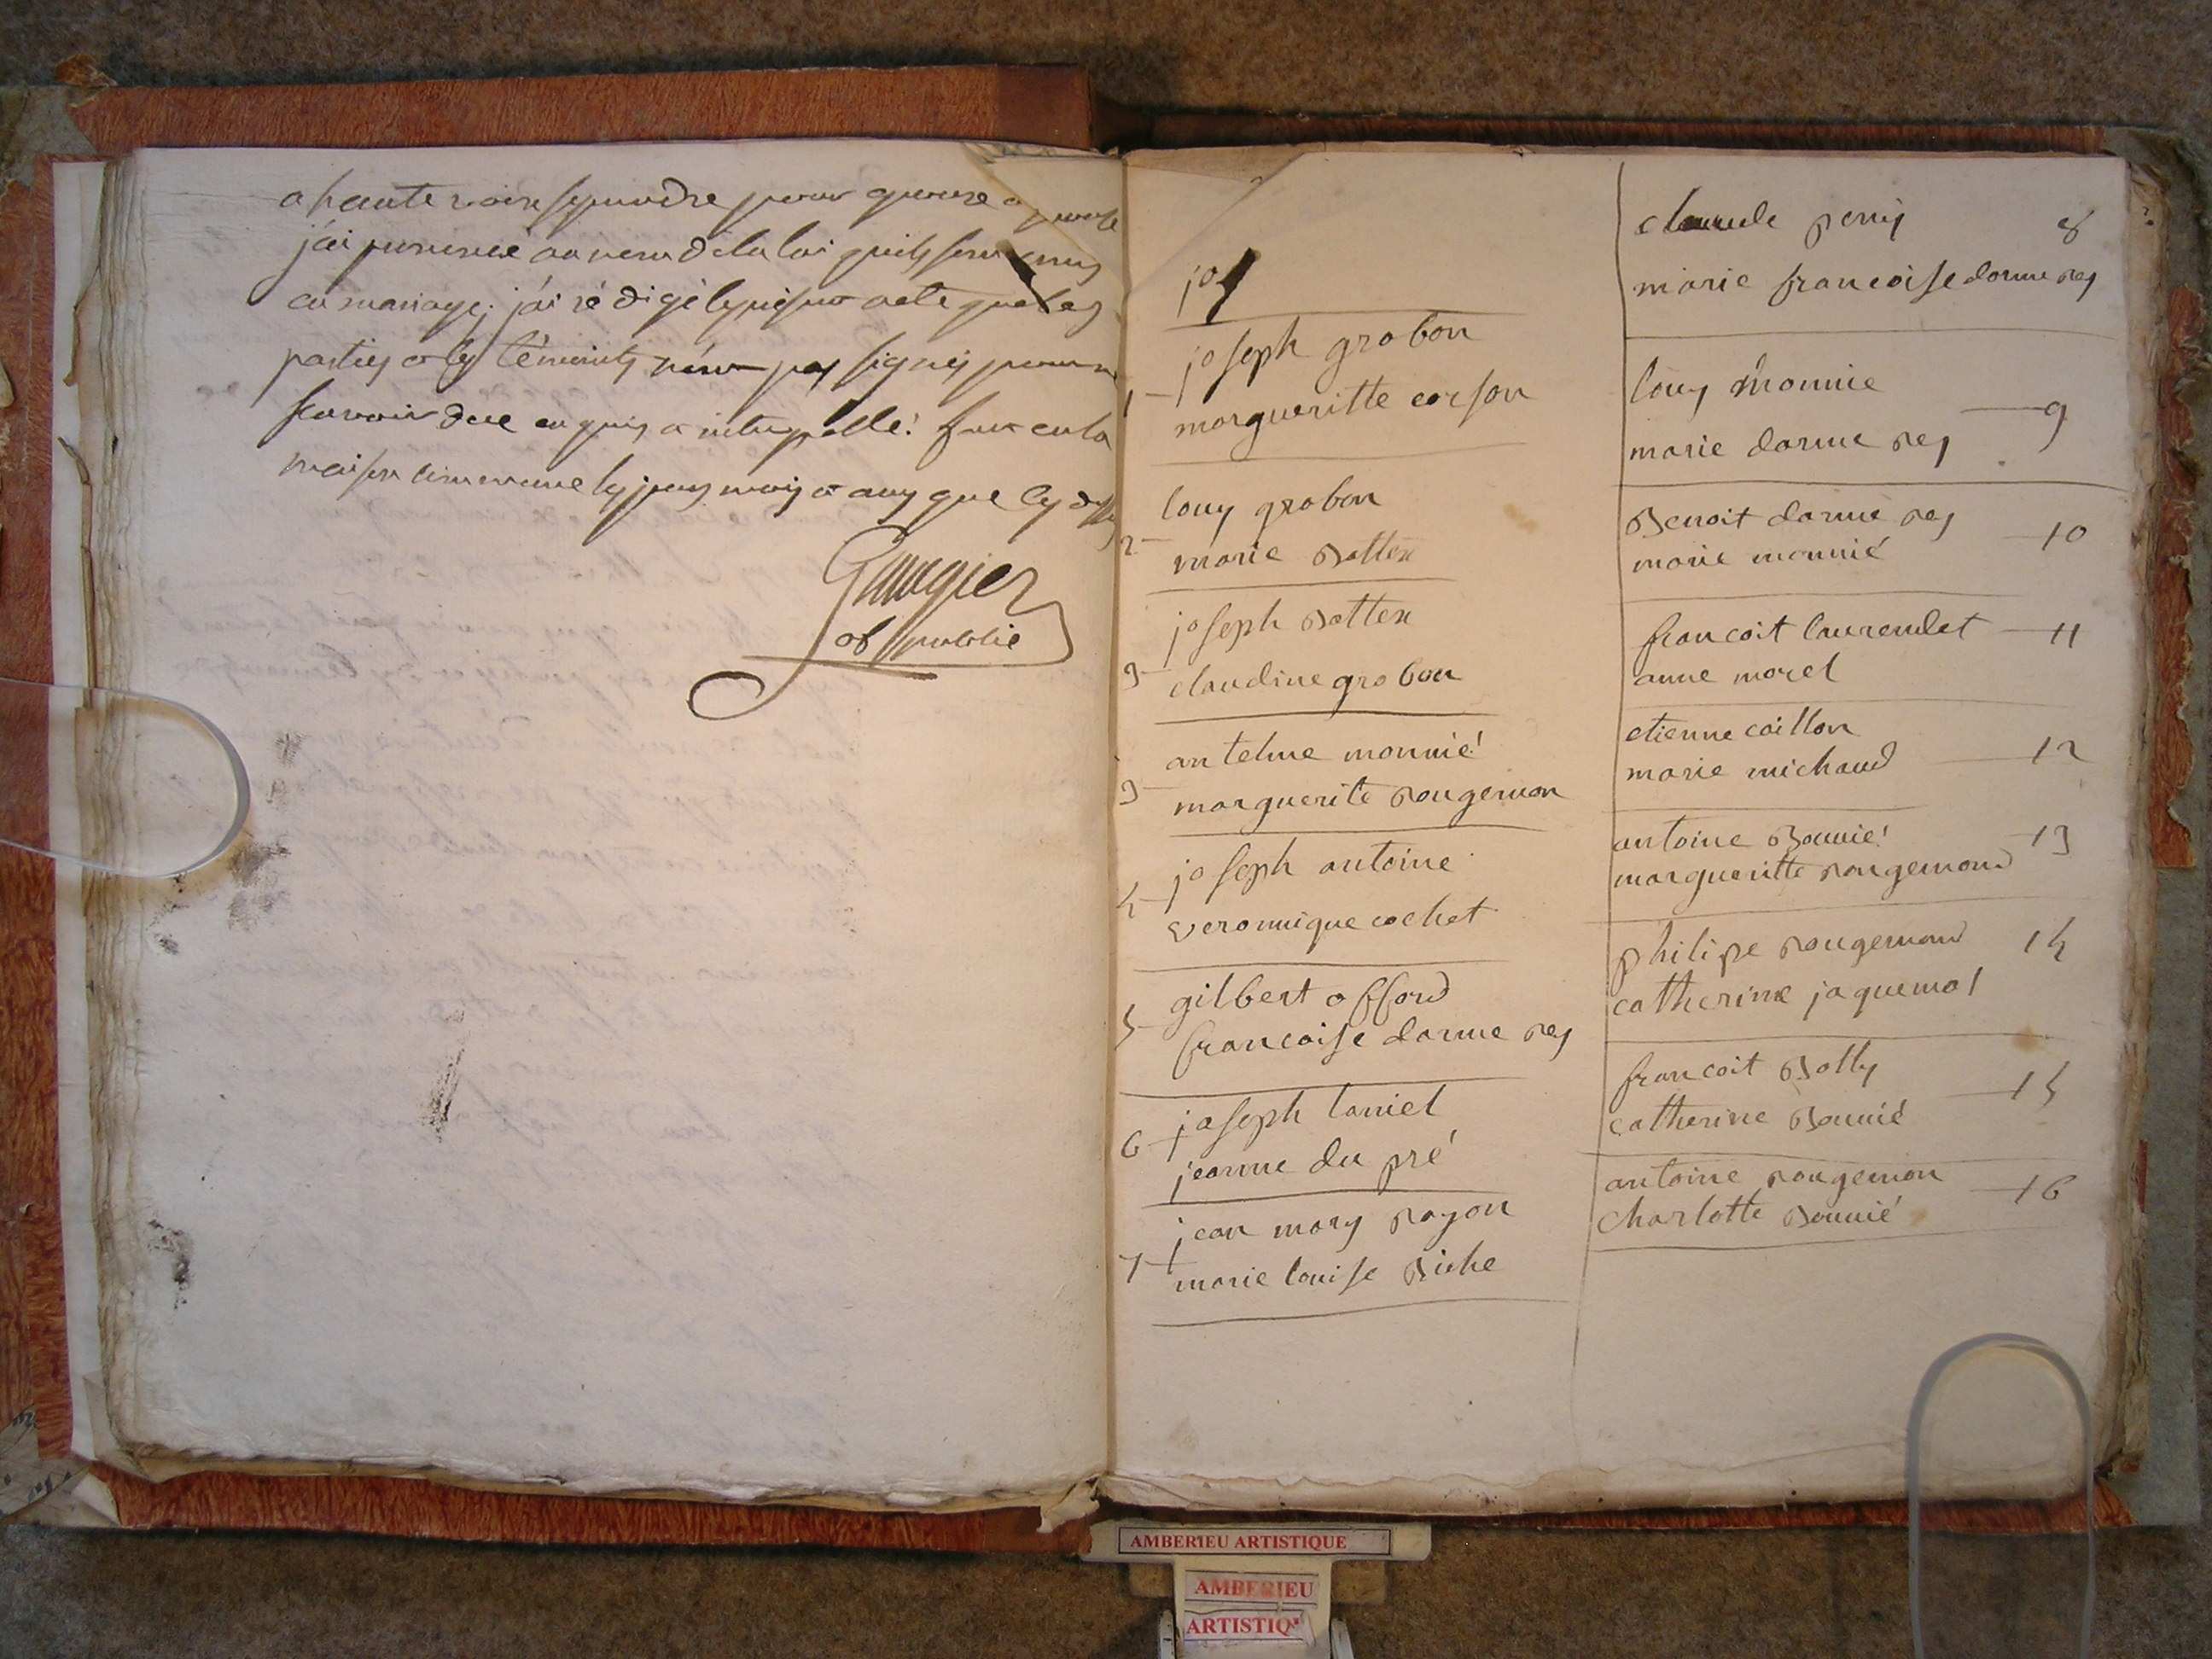 a haute voix se prendre pour epouse
j'ai prononcé au nom de la loi quils sont unis
en mariage; j'ai rédigé le present acte que les
parties et les témoints n'ont pas signés pour ne
scavoir de ce enquis et interpellé! fait en la
maison commune les jours mois et ans que
of public
jo
joseph grobon
1
margueritte corson
louy grobon
2
marie Bottex
joseph Bottex
3
claudine grobon
antelme monnié
3
marguerite rougemon
joseph antoine
4
veronnique cochet
gilbert afford
5
francoise darme rey
joseph laniel
6
jeanne du pré
jean mary rayon
7
marie louise Riche
claude perriy 8
marie francoise darme rey
louy monnie
9
marie darme rey
Benoit darme rey
10
marie monnié
francoit laurendet 11
anne morel
etienne caillon
marie michaud 12
antoine Bonnié 13
margueritte rougemond
philipe rougemond 14
catherine jaquemot
francoit Bolly
15
catherine Bonnié
antoine rougemon
16
charlotte Bonnié
AMBERIEU ARTISTIQUE
AMBERIEU
ARTISTIQ